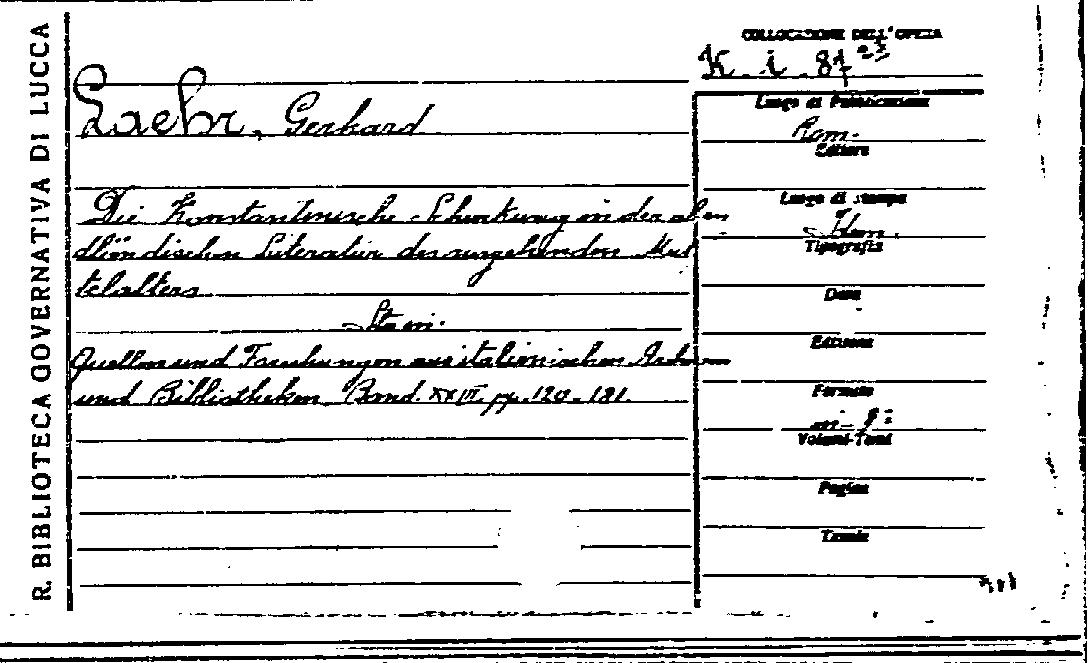 R. BIBLIOTECA GOVERNATIVA DI LUCCA
COLLOCAZIONE DELL'OPERA
K. i. 87
Laehr, Gerhard
Die Konstantinische Schenkung in der aben
dländischen Literatur des ausgehenden Mit
telalters
Sta in:
Quellen und Forschungen aus italienischen Archiven
und Bibliotheken Band XXIII pp. 120-181.
Luogo di Pubblicazione
Rom.
Editore
Luogo di stampa
Idem.
Tipografia
Data
Edizione
Formato
in-8°
Volumi-Tomi
Pagine
Tavole